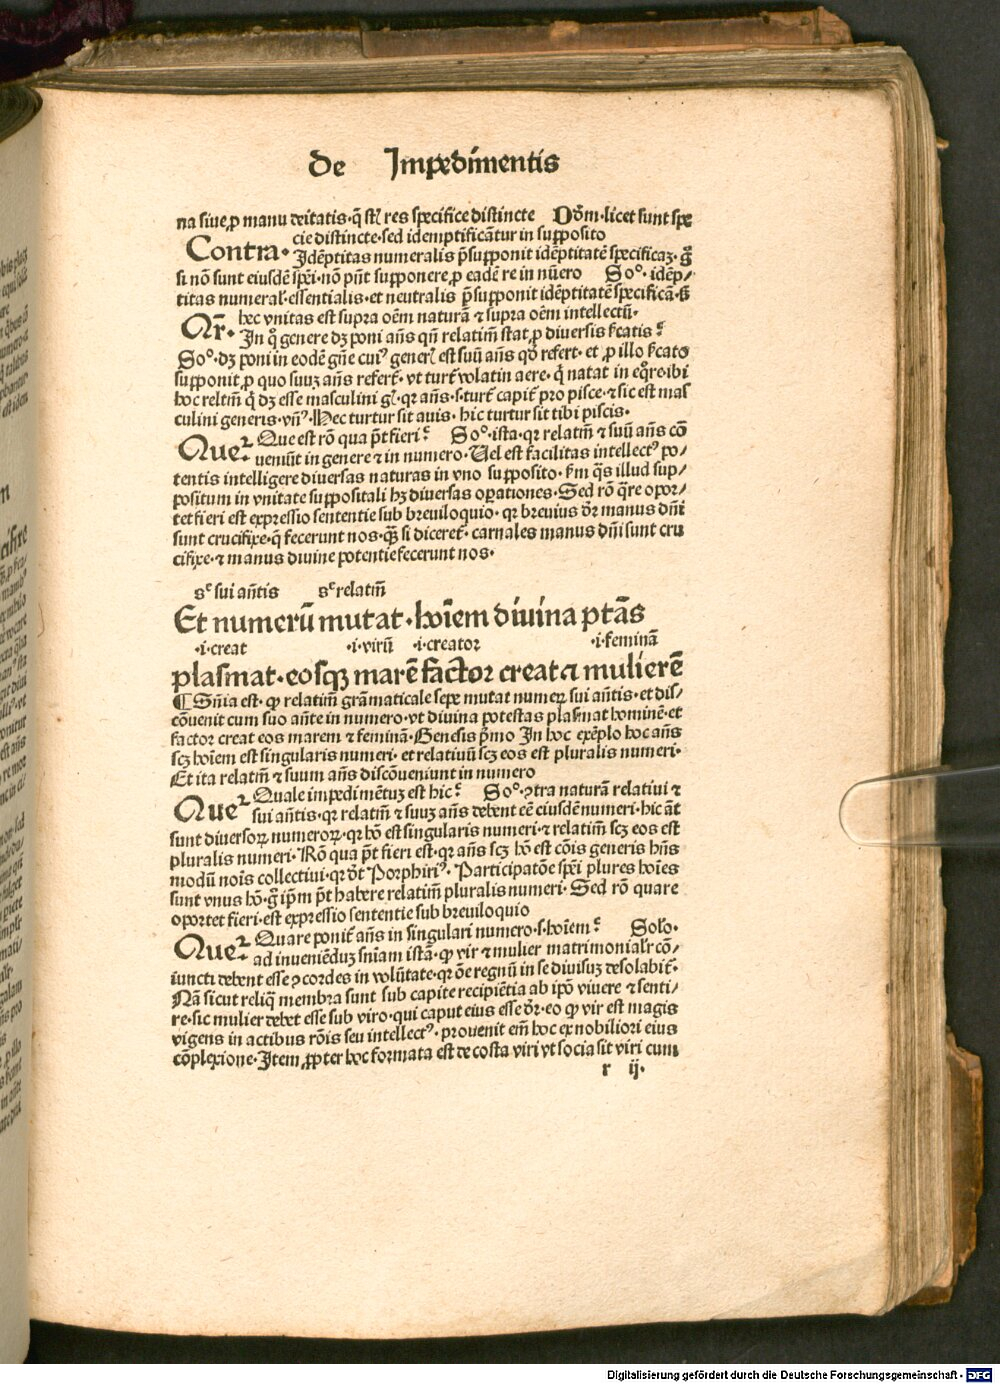 De Impedimentis
na siue ꝓ manu deitatis·q̄ st̄ res specifice distincte Dōm·licet sunt spe
cie distincte·sed idemptificātur in supposito
Contra· Idēptitas numeralis p̄supponit idēptitatē specificaꝫ·g̊
si nō sunt eiusdē spēi·nō pn̄t supponere ꝓ eadē re in nūero So°·idēp/
titas numeral̓·essentialis·et neutralis p̄supponit idēptitatē specificā·
hec vnitas est supra oēm naturā ⁊ supra oēm intellectū·
Ar̄· In q̄ genere dꝫ poni an̄s qn̄ relatiūm stat ꝓ diversis
So°·dꝫ poni in eodē gn̄e cuiꝰ gener̄ est suū an̄s qd̄ refert·et ꝓ illo
supponit ꝓ quo suuꝫ an̄s refert̄·vt turt̄ volat in aere·q̄ natat in eq̄re·ibi
hoc reltm̄ q̄ dꝫ esse masculini gl̄·qꝛ an̄s·s·turt̄ capit̄ pro pisce·⁊ sic est mas
culini generis·vn̄ꝰ·Hec turtur sit auis·hic turtur sit tibi piscis·
Que² Que est rō qua p̄t fieri So°·ista·qꝛ relatiūm ⁊ suū an̄s cō
veniūt in genere ⁊ in numero·Uel est facilitas intellectꝰ po/
tentis intelligere diuersas naturas in vno supposito·
positum in vnitate suppositali hꝫ diuersas oꝑationes·Sed rō q̄re opor/
tet fieri est expressio sententie sub breuiloquio·qꝛ breuius dr̄ manus dn̄i
sunt crucifixe·q̄ fecerunt nos·qȝ si diceret̄·carnales manus dn̄i sunt cru
cifixe·⁊ manus diuine potentie fecerunt nos·
sᶜ sui an̄tis sᶜ relatiūm
Et numerū mutat·hoīem diuina ptās
·i·creat ·i·virū ·i·creator ·i·feminā
plasmat·eosqꝫ marē factor creat ⁊ mulierē
¶ Sn̄ia est·ꝙ relatiūm grāmaticale sepe mutat numeꝝ sui an̄tis·et dis/
cōuenit cum suo an̄te in numero·vt diuina potestas plasmat hominē·et
factor creat eos marem ⁊ feminā·Genesis p̄mo In hoc exēplo hoc an̄s
scꝫ hoīem est singularis numeri·et relatiuū scꝫ eos est pluralis numeri·
Et ita relatiūm ⁊ suum an̄s discōueniunt in numero
Que² Quale impedimētuꝫ est hic So°·ꝯtra naturā relatiui ⁊
sui an̄tis·qꝛ relatiūm ⁊ suuꝫ an̄s debent eē eiusdē numeri·hic aūt
sunt diuersoꝝ numeroꝝ·qꝛ hō est singularis numeri·⁊ relatiūm scꝫ eos est
pluralis numeri·Rō qua p̄t fieri est·qꝛ an̄s scꝫ hō est cōis generis hn̄s
modū nois collectiui·qꝛ dt̄ Porphiriꝰ·Participatōe spēi plures hoīes
sunt vnus hō·g̊ ip̄m p̄t habere relatiūm pluralis numeri·Sed rō quare
oportet fieri·est expressio sententie sub breuiloquio
Que² Quare ponit̄ an̄s in singulari numero·s·hoīem Solo·
ad inueniēduꝫ sn̄iam istā·ꝙ vir ⁊ mulier matrimonialr̄ cō/
iuncti debent esse ꝯcordes in volūtate·qꝛ oē regnū in se diuisuꝫ desolabit̄·
Nā sicut reliq̄ membra sunt sub capite recipiētia ab ip̄o viuere ⁊ senti/
re·sic mulier debet esse sub viro·qui caput eius esse dr̄·eo ꝙ vir est magis
vigens in actibus rōis seu intellectꝰ·prouenit em̄ hoc ex nobiliori eius
cōplexione·Item ꝓpter hoc formata est de costa viri vt socia sit viri cum
r ij·
Digitalisierung gefördert durch die Deutsche Forschungsgemeinschaft - DFG